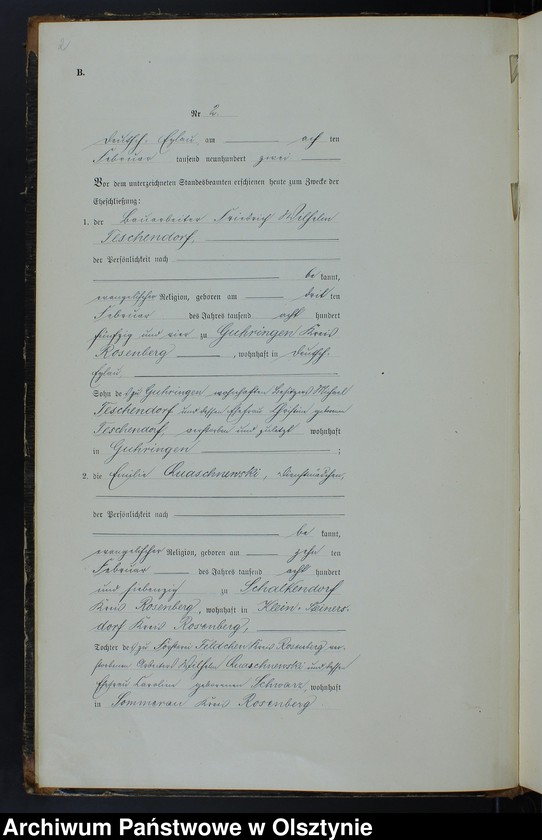 2
B.
Nr 2
Deutsch. Eylau, am acht ten
Februar tausend neunhundert zwei
Vor dem unterzeichneten Standesbeamten erschienen heute zum Zwecke der
Eheschließung:
1. der Bauarbeiter Friedrich Wilhelm
Teschendorf,
der Persönlichkeit nach
be kannt,
evangelischer Religion, geboren am drit ten
Februar des Jahres tausend acht hundert
fünfzig und vier zu Guhringen Kreis
Rosenberg, wohnhaft in Deutsch.
Eylau
Sohn des zu Guhringen wohnhaften Besitzers Michael
Teschendorf und dessen Ehefrau geborene
Teschendorf, verstorben und zuletzt wohnhaft
in Guhringen ;
2. die Emilie Quaschnewski, Dienstmädchen,
der Persönlichkeit nach
be kannt,
evangelischer Religion, geboren am zehn ten
Februar des Jahres tausend acht hundert
und siebenzig zu Schalkendorf
Kreis Rosenberg, wohnhaft in Klein-
dorf Kreis Rosenberg,
Tochter des zu Kreis Rosenberg ver-
storbenen Arbeiters Wilhelm Quaschnewski und dessen
Ehefrau Caroline geborenen Schwarz, wohnhaft
in Sommerau Kreis Rosenberg
Archiwum Państwowe w Olsztynie